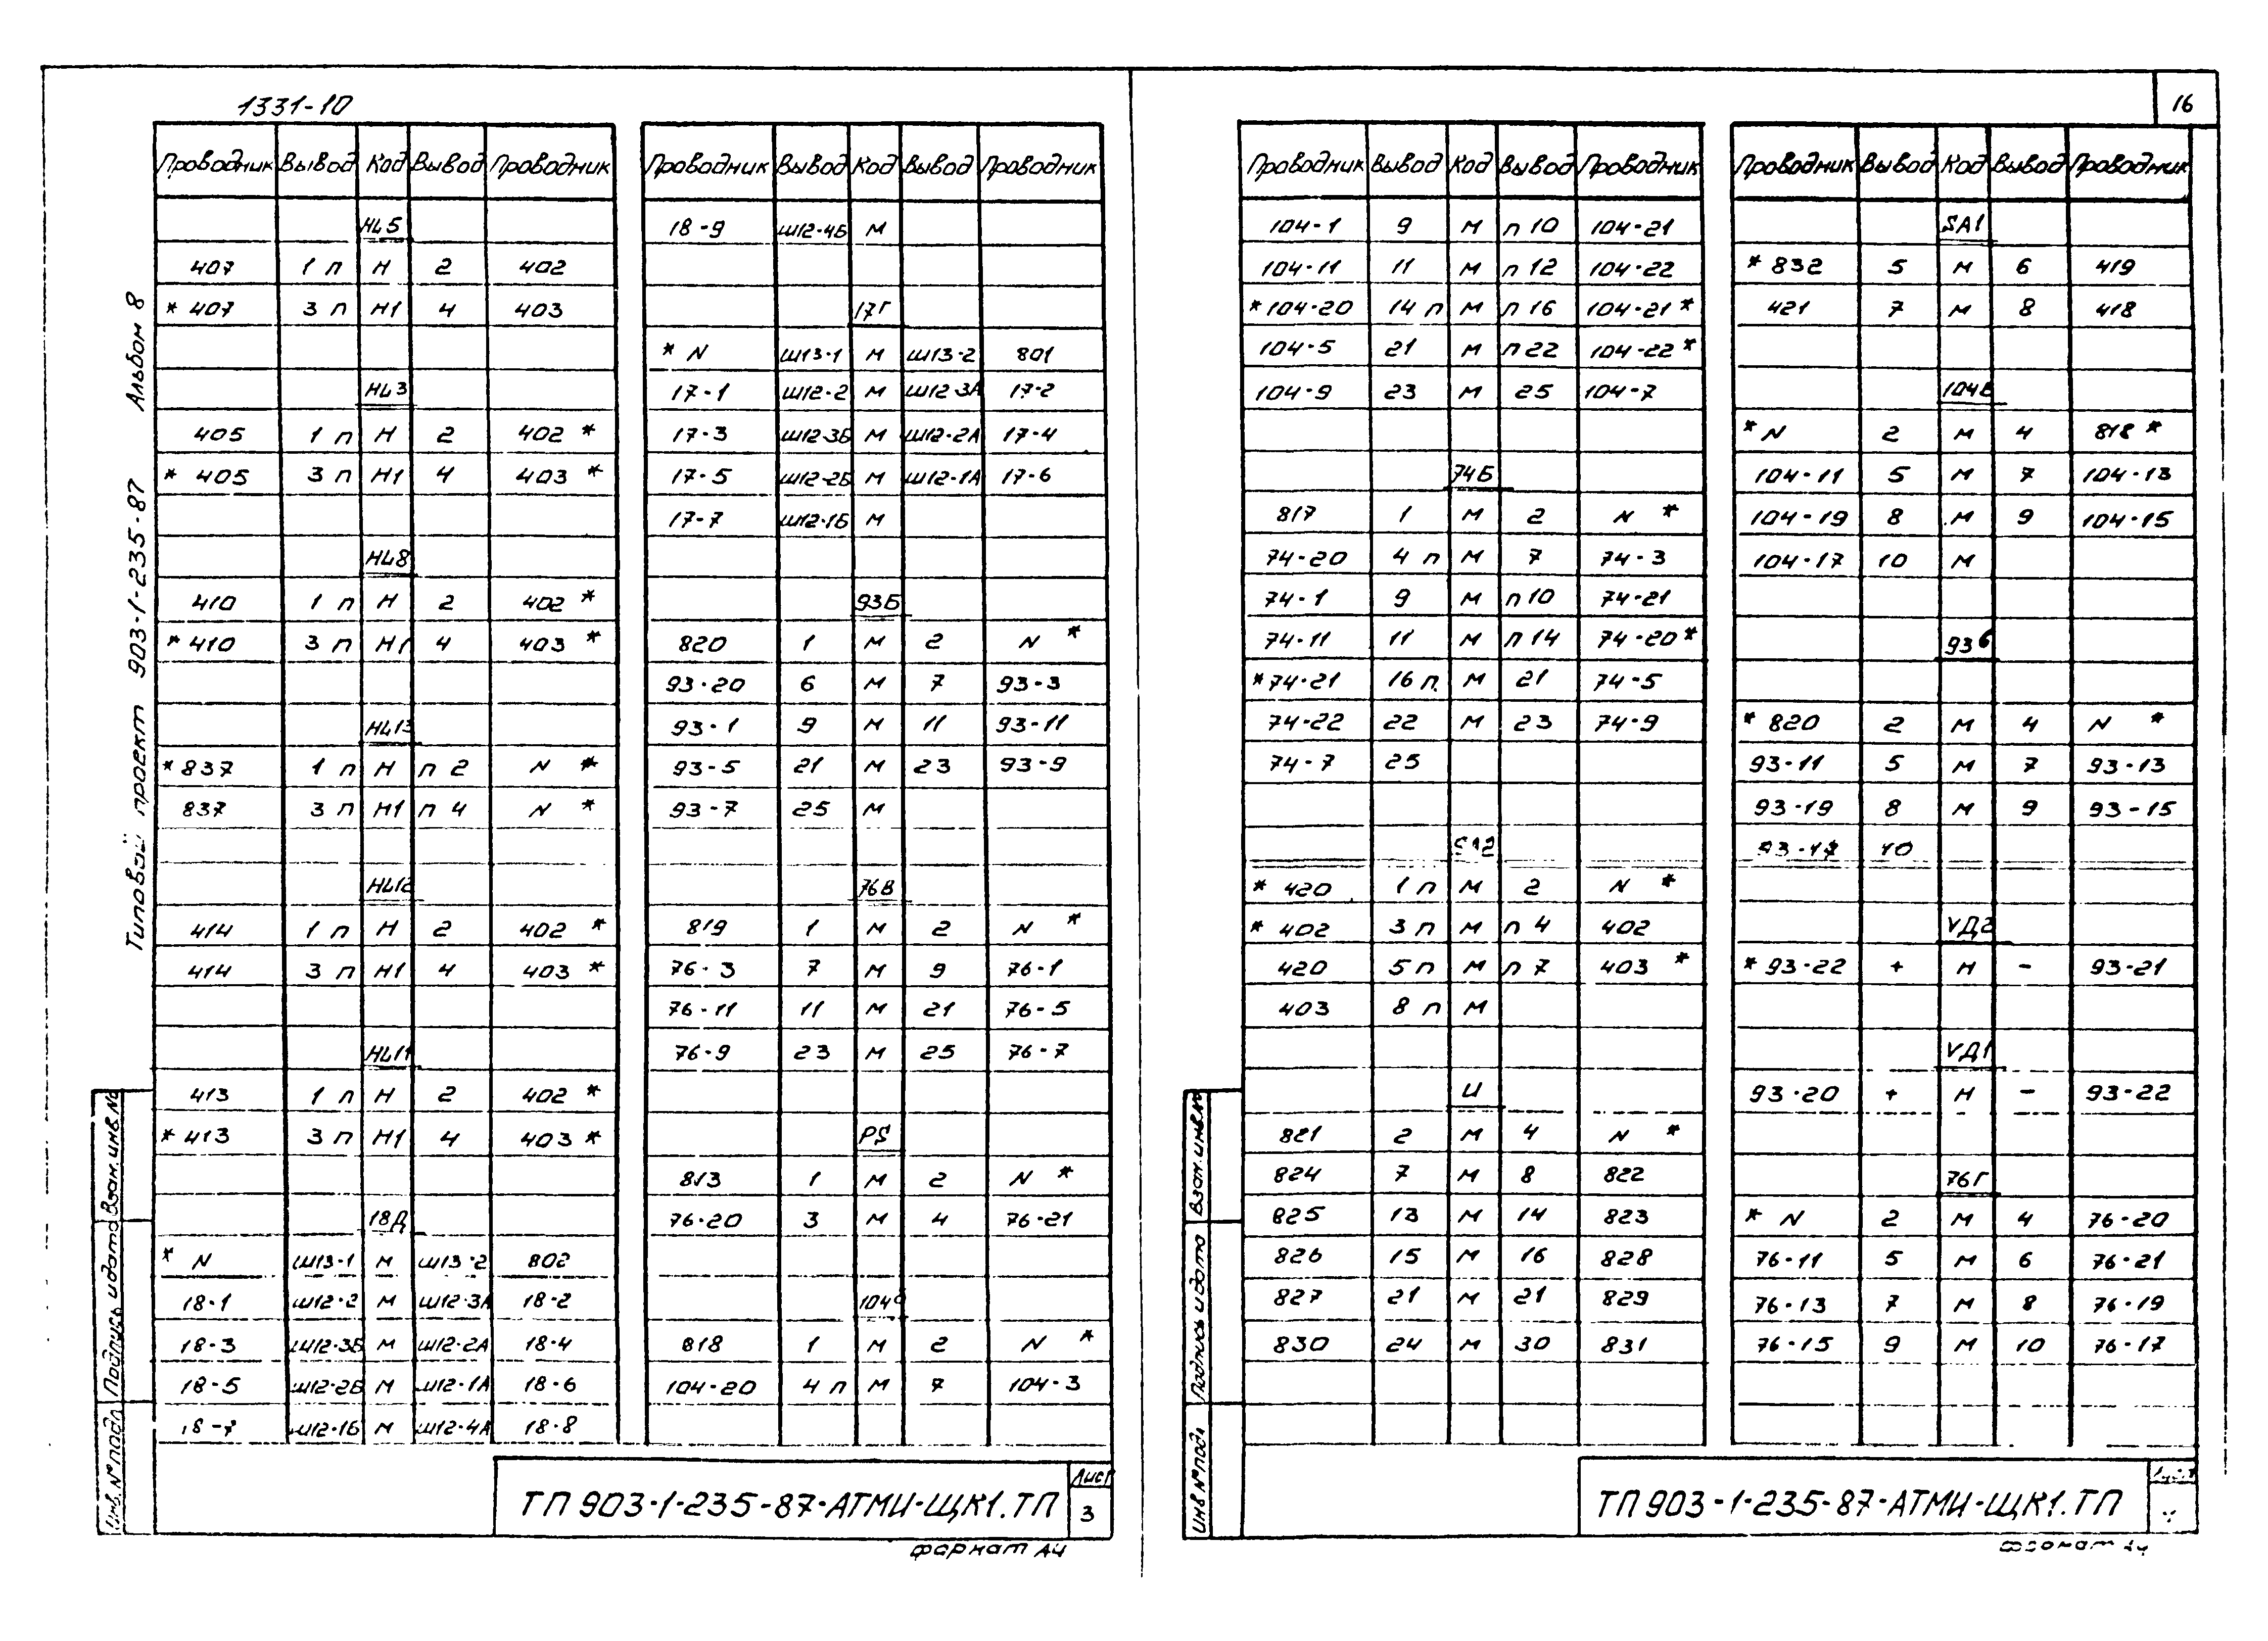 1331-10
16
Типовой проект 903-1-235-87 Альбом 8
Проводник Вывод Код Вывод Проводник
HL5
407 1 п Н 2 402
* 407 3 п Н1 4 403
HL3
405 1 п Н 2 402 *
* 405 3 п Н1 4 403 *
HL8
410 1 п Н 2 402 *
* 410 3 п Н1 4 403 *
HL13
* 837 1 п Н п 2 N *
837 3 п Н1 п 4 N *
HL12
414 1 п Н 2 402 *
414 3 п Н1 4 403 *
HL11
413 1 п Н 2 402 *
* 413 3 п Н1 4 403 *
18Д
* N Ш13-1 М Ш13-2 802
18-1 Ш12-2 М Ш12-3А 18-2
18-3 Ш12-3Б М Ш12-2А 18-4
18-5 Ш12-2Б М Ш12-1А 18-6
18-7 Ш12-1Б М Ш12-4А 18-8
Проводник Вывод Код Вывод Проводник
18-9 Ш12-4Б М
17Г
* N Ш13-1 М Ш13-2 801
17-1 Ш12-2 М Ш12-3А 17-2
17-3 Ш12-3Б М Ш12-2А 17-4
17-5 Ш12-2Б М Ш12-1А 17-6
17-7 Ш12-1Б М
93Б
820 1 М 2 N *
93-20 6 М 7 93-3
93-1 9 М 11 93-11
93-5 21 М 23 93-9
93-7 25 М
76В
819 1 М 2 N *
76-3 7 М 9 76-1
76-11 11 М 21 76-5
76-9 23 М 25 76-7
PS
813 1 М 2 N *
76-20 3 М 4 76-21
818 1 М 2 N *
104-20 4 п М 7 104-3
Инв.№подл Подпись и дата Взам.инв.№
ТП 903-1-235-87-АТМИ-ЩК1.ТП
Лист
3
Формат А4
Проводник Вывод Код Вывод Проводник
104-1 9 М п 10 104-21
104-11 11 М п 12 104-22
* 104-20 14 п М п 16 104-21 *
104-5 21 М п 22 104-22 *
104-9 23 М 25 104-7
74Б
817 1 М 2 N *
74-20 4 п М 7 74-3
74-1 9 М п 10 74-21
74-11 11 М п 14 74-20 *
* 74-21 16 п М 21 74-5
74-22 22 М 23 74-9
74-7 25
SA2
* 420 1 п М 2 N *
* 402 3 п М п 4 402
420 5 п М п 7 403 *
403 8 п М
И
821 2 М 4 N *
824 7 М 8 822
825 13 М 14 823
826 15 М 16 828
827 21 М 21 829
830 24 М 30 831
Проводник Вывод Код Вывод Проводник
SA1
* 832 5 М 6 419
421 7 М 8 418
104В
* N 2 М 4 818 *
104-11 5 М 7 104-13
104-19 8 М 9 104-15
104-17 10 М
93б
* 820 2 М 4 N *
93-11 5 М 7 93-13
93-19 8 М 9 93-15
93-17 10
VД2
* 93-22 + Н - 93-21
VД1
93-20 + Н - 93-22
76Г
* N 2 М 4 76-20
76-11 5 М 6 76-21
76-13 7 М 8 76-19
76-15 9 М 10 76-17
Инв №подл Подпись и дата Взам.инв.№
ТП 903-1-235-87-АТМИ-ЩК1.ТП
Лист
Формат А4